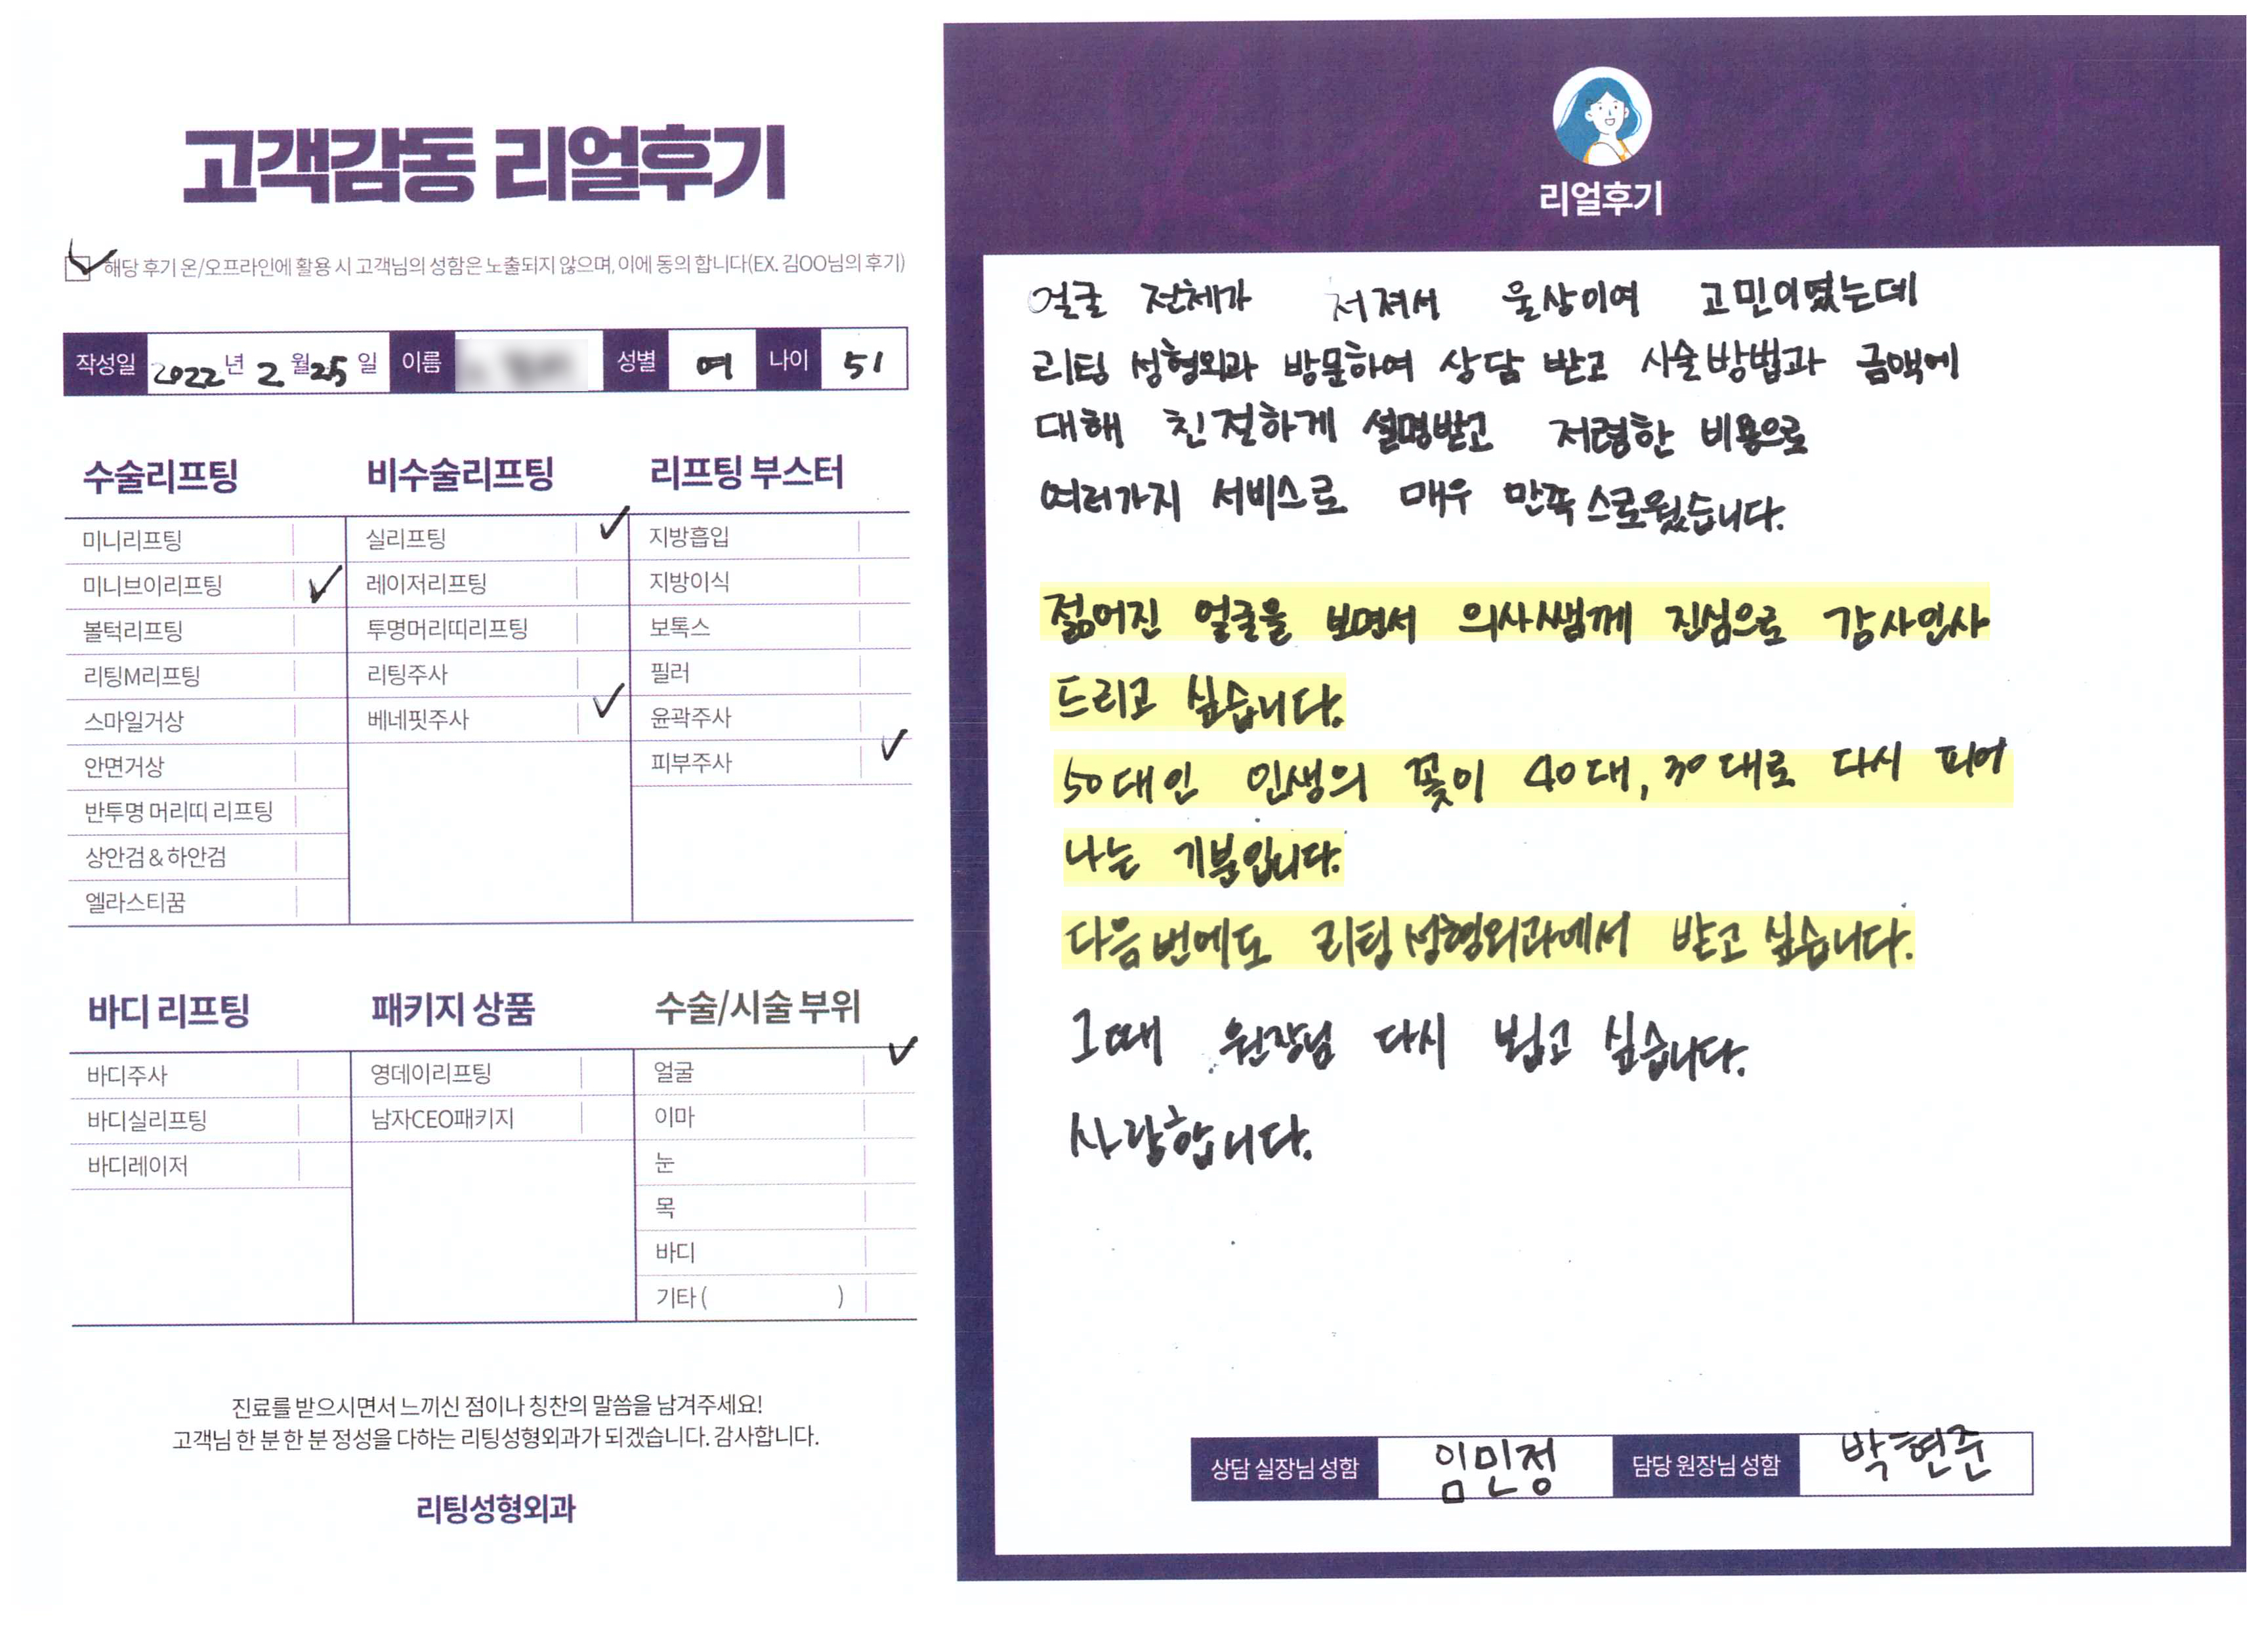 고객감동 리얼후기
해당 후기 온/오프라인에 활용 시 고객님의 성함은 노출되지 않으며, 이에 동의 합니다(EX. 김OO님의 후기)
작성일 2022년 2월 25일 이름 성별 여 나이 51
수술리프팅
미니리프팅
미니브이리프팅
볼턱리프팅
리팅M리프팅
스마일거상
안면거상
반투명 머리띠 리프팅
상안검 & 하안검
엘라스티꿈
비수술리프팅
실리프팅
레이저리프팅
투명머리띠리프팅
리팅주사
베네핏주사
리프팅 부스터
지방흡입
지방이식
보톡스
필러
윤곽주사
피부주사
바디 리프팅
바디주사
바디실리프팅
바디레이저
패키지 상품
영데이리프팅
남자CEO패키지
수술/시술 부위
얼굴
이마
눈
목
바디
기타 ( )
진료를 받으시면서 느끼신 점이나 칭찬의 말씀을 남겨주세요!
고객님 한 분 한 분 정성을 다하는 리팅성형외과가 되겠습니다. 감사합니다.
리팅성형외과
리얼후기
얼굴 전체가 저져서 울상이여 고민이였는데
리팅 성형외과 방문하여 상담 받고 시술방법과 금액에
대해 친절하게 설명받고 저령한 비용으로
여러가지 서비스로 매우 만족스로웠습니다.
젊어진 얼굴을 보면서 의사쌤께 진심으로 감사인사
드리고 싶습니다.
50대인 인생의 꽃이 40대, 30대로 다시 피어
나는 기분입니다.
다음번에도 리팅성형외과에서 받고 싶습니다.
그때 원장님 다시 뵙고 싶습니다.
사랑합니다.
상담 실장님 성함 임민정 담당 원장님 성함 박현준